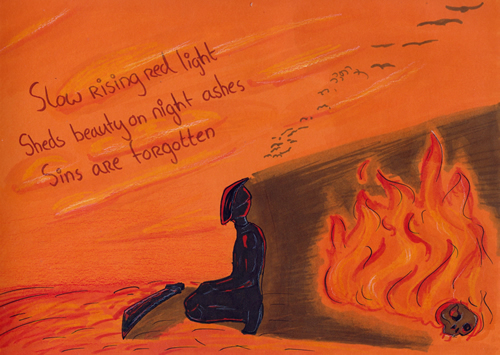 Slow rising red light
Sheds beauty on night ashes
Sins are forgotten